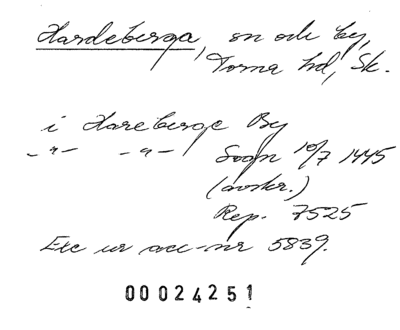 Hardeberga, sn och by,
Torna hd, Sk.
i Hareberge By
-"- -"- Sogn 10/7 1445
(avskr.)
Rep. 7525
Exc ur acc-nr 5839.
00024251